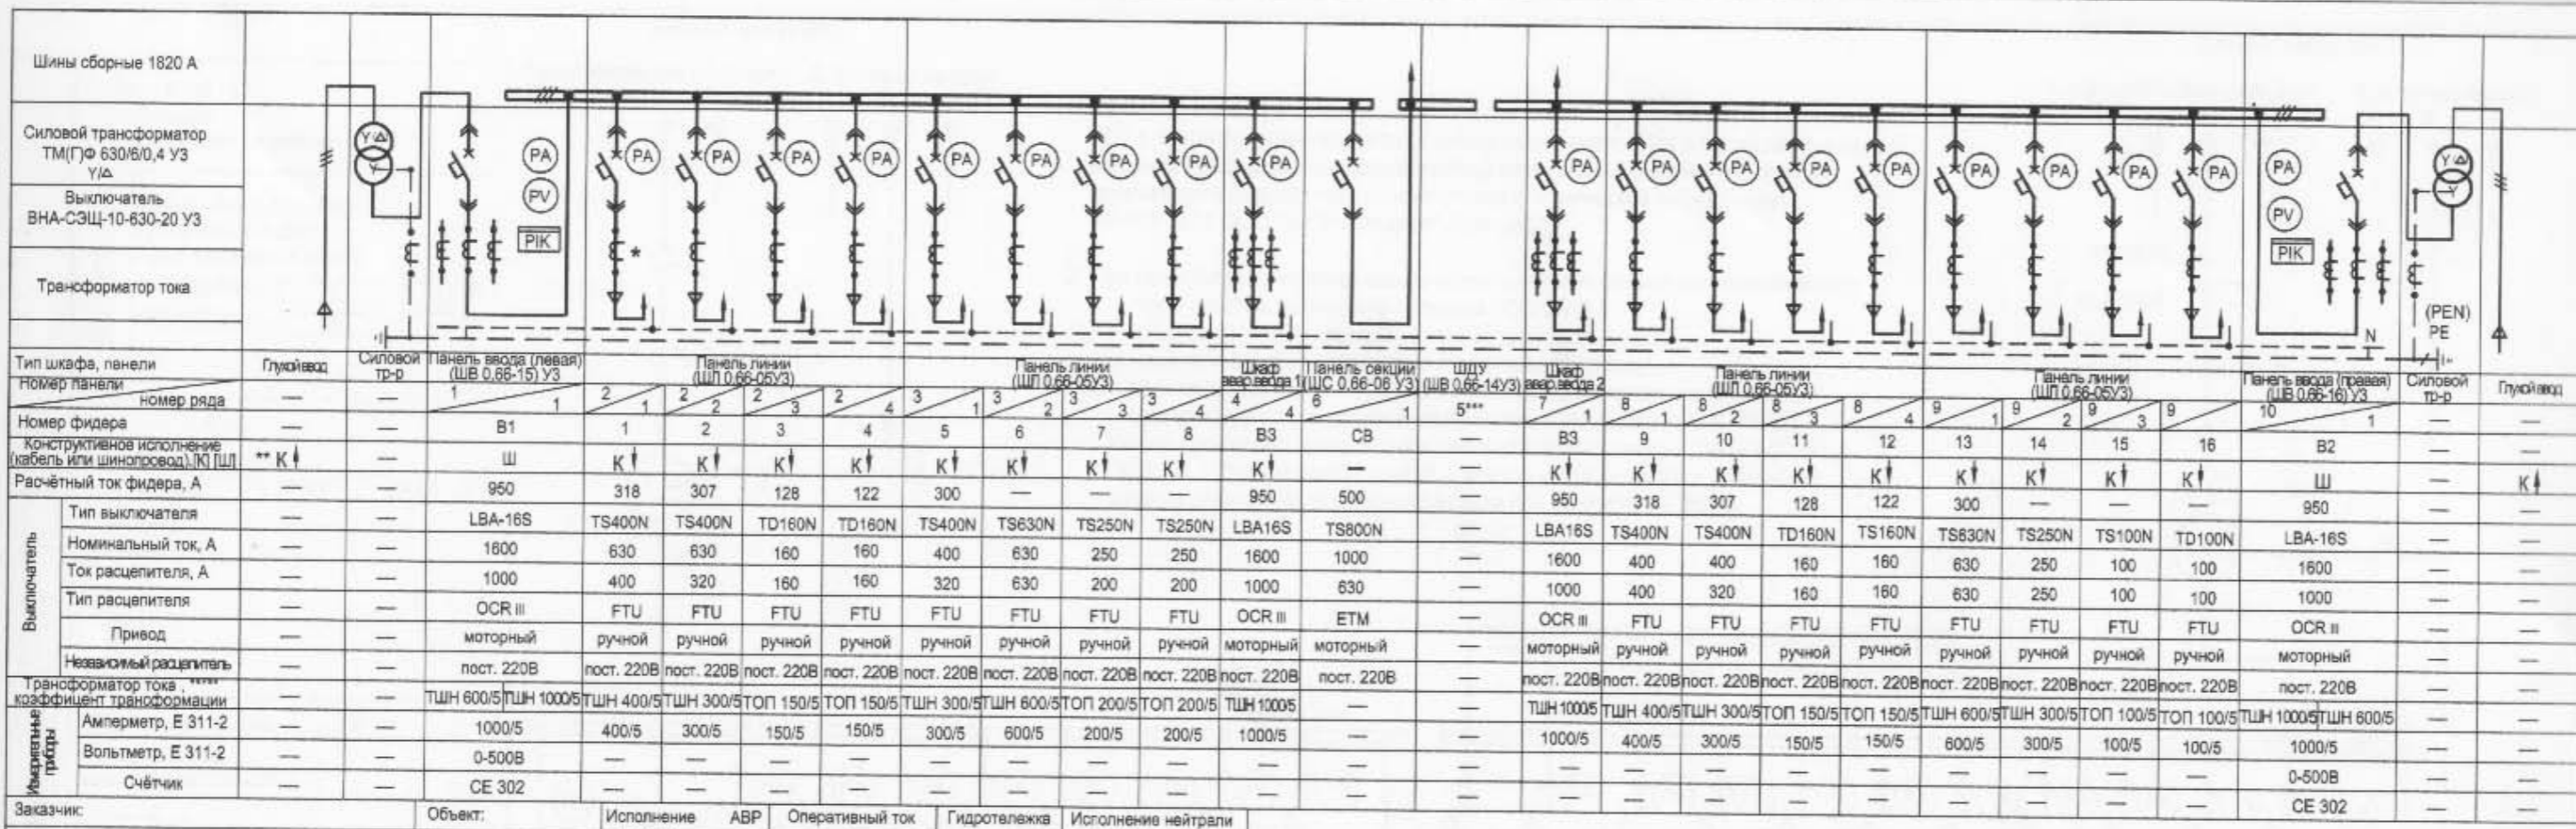 Шины сборные 1820 А
Силовой трансформатор
ТМ(Г)Ф 630/6/0,4 У3
Y/Δ
Выключатель
ВНА-СЭЩ-10-630-20 У3
Трансформатор тока
Y/Δ Y
PA PV PIK
PA PA PA PA PA PA PA PA PA
*
PA PA PA PA PA PA PA PA PA
PA PV PIK
Y/Δ Y
N
(PEN)
PE
Тип шкафа, панели Глухой ввод Силовой тр-р Панель ввода (левая) (ШВ 0,66-15) У3 Панель линии (ШЛ 0,66-05У3) Панель линии (ШЛ 0,66-05У3) Шкаф авар.ввода 1 Панель секции (ШС 0,66-06 У3) ШДУ (ШВ 0,66-14У3) Шкаф авар.ввода 2 Панель линии (ШЛ 0,66-05У3) Панель линии (ШЛ 0,66-05У3) Панель ввода (правая) (ШВ 0,66-16) У3 Силовой тр-р Глухой ввод
Номер панели номер ряда — — 1 1 2 1 2 2 2 3 2 4 3 1 3 2 3 3 3 4 4 4 6 1 5*** 7 1 8 1 8 2 8 3 8 4 9 1 9 2 9 3 9 10 1 — —
Номер фидера — — В1 1 2 3 4 5 6 7 8 В3 СВ — В3 9 10 11 12 13 14 15 16 В2 — —
Конструктивное исполнение (кабель или шинопровод),[К] [Ш] ** К — Ш К К К К К К К К К — — К К К К К К К К К Ш — К
Расчётный ток фидера, А — — 950 318 307 128 122 300 — — — 950 500 — 950 318 307 128 122 300 — — — 950 — —
Выключатель
Тип выключателя — — LBA-16S TS400N TS400N TD160N TD160N TS400N TS630N TS250N TS250N LBA16S TS800N — LBA16S TS400N TS400N TD160N TS160N TS630N TS250N TS100N TD100N LBA-16S — —
Номинальный ток, А — — 1600 630 630 160 160 400 630 250 250 1600 1000 — 1600 400 400 160 160 630 250 100 100 1600 — —
Ток расцепителя, А — — 1000 400 320 160 160 320 630 200 200 1000 630 — 1000 400 320 160 160 630 250 100 100 1000 — —
Тип расцепителя — — OCR III FTU FTU FTU FTU FTU FTU FTU FTU OCR III ETM — OCR III FTU FTU FTU FTU FTU FTU FTU FTU OCR III — —
Привод — — моторный ручной ручной ручной ручной ручной ручной ручной ручной моторный моторный — моторный ручной ручной ручной ручной ручной ручной ручной ручной моторный — —
Независимый расцепитель — — пост. 220В пост. 220В пост. 220В пост. 220В пост. 220В пост. 220В пост. 220В пост. 220В пост. 220В пост. 220В пост. 220В — пост. 220В пост. 220В пост. 220В пост. 220В пост. 220В пост. 220В пост. 220В пост. 220В пост. 220В пост. 220В — —
Трансформатор тока , **** коэффицент трансформации — — ТШН 600/5 ТШН 1000/5 ТШН 400/5 ТШН 300/5 ТОП 150/5 ТОП 150/5 ТШН 300/5 ТШН 600/5 ТОП 200/5 ТОП 200/5 ТШН 1000/5 — — ТШН 1000/5 ТШН 400/5 ТШН 300/5 ТОП 150/5 ТОП 150/5 ТШН 600/5 ТШН 300/5 ТОП 100/5 ТОП 100/5 ТШН 1000/5 ТШН 600/5 — —
Измерительные приборы
Амперметр, Е 311-2 — — 1000/5 400/5 300/5 150/5 150/5 300/5 600/5 200/5 200/5 1000/5 — — 1000/5 400/5 300/5 150/5 150/5 600/5 300/5 100/5 100/5 1000/5 — —
Вольтметр, Е 311-2 — — 0-500В — — — — — — — — — — — — — — — — — — — — 0-500В — —
Счётчик — — СЕ 302 — — — — — — — — — — — — — — — — — — — — СЕ 302 — —
Заказчик: Объект: Исполнение АВР Оперативный ток Гидротележка Исполнение нейтрали